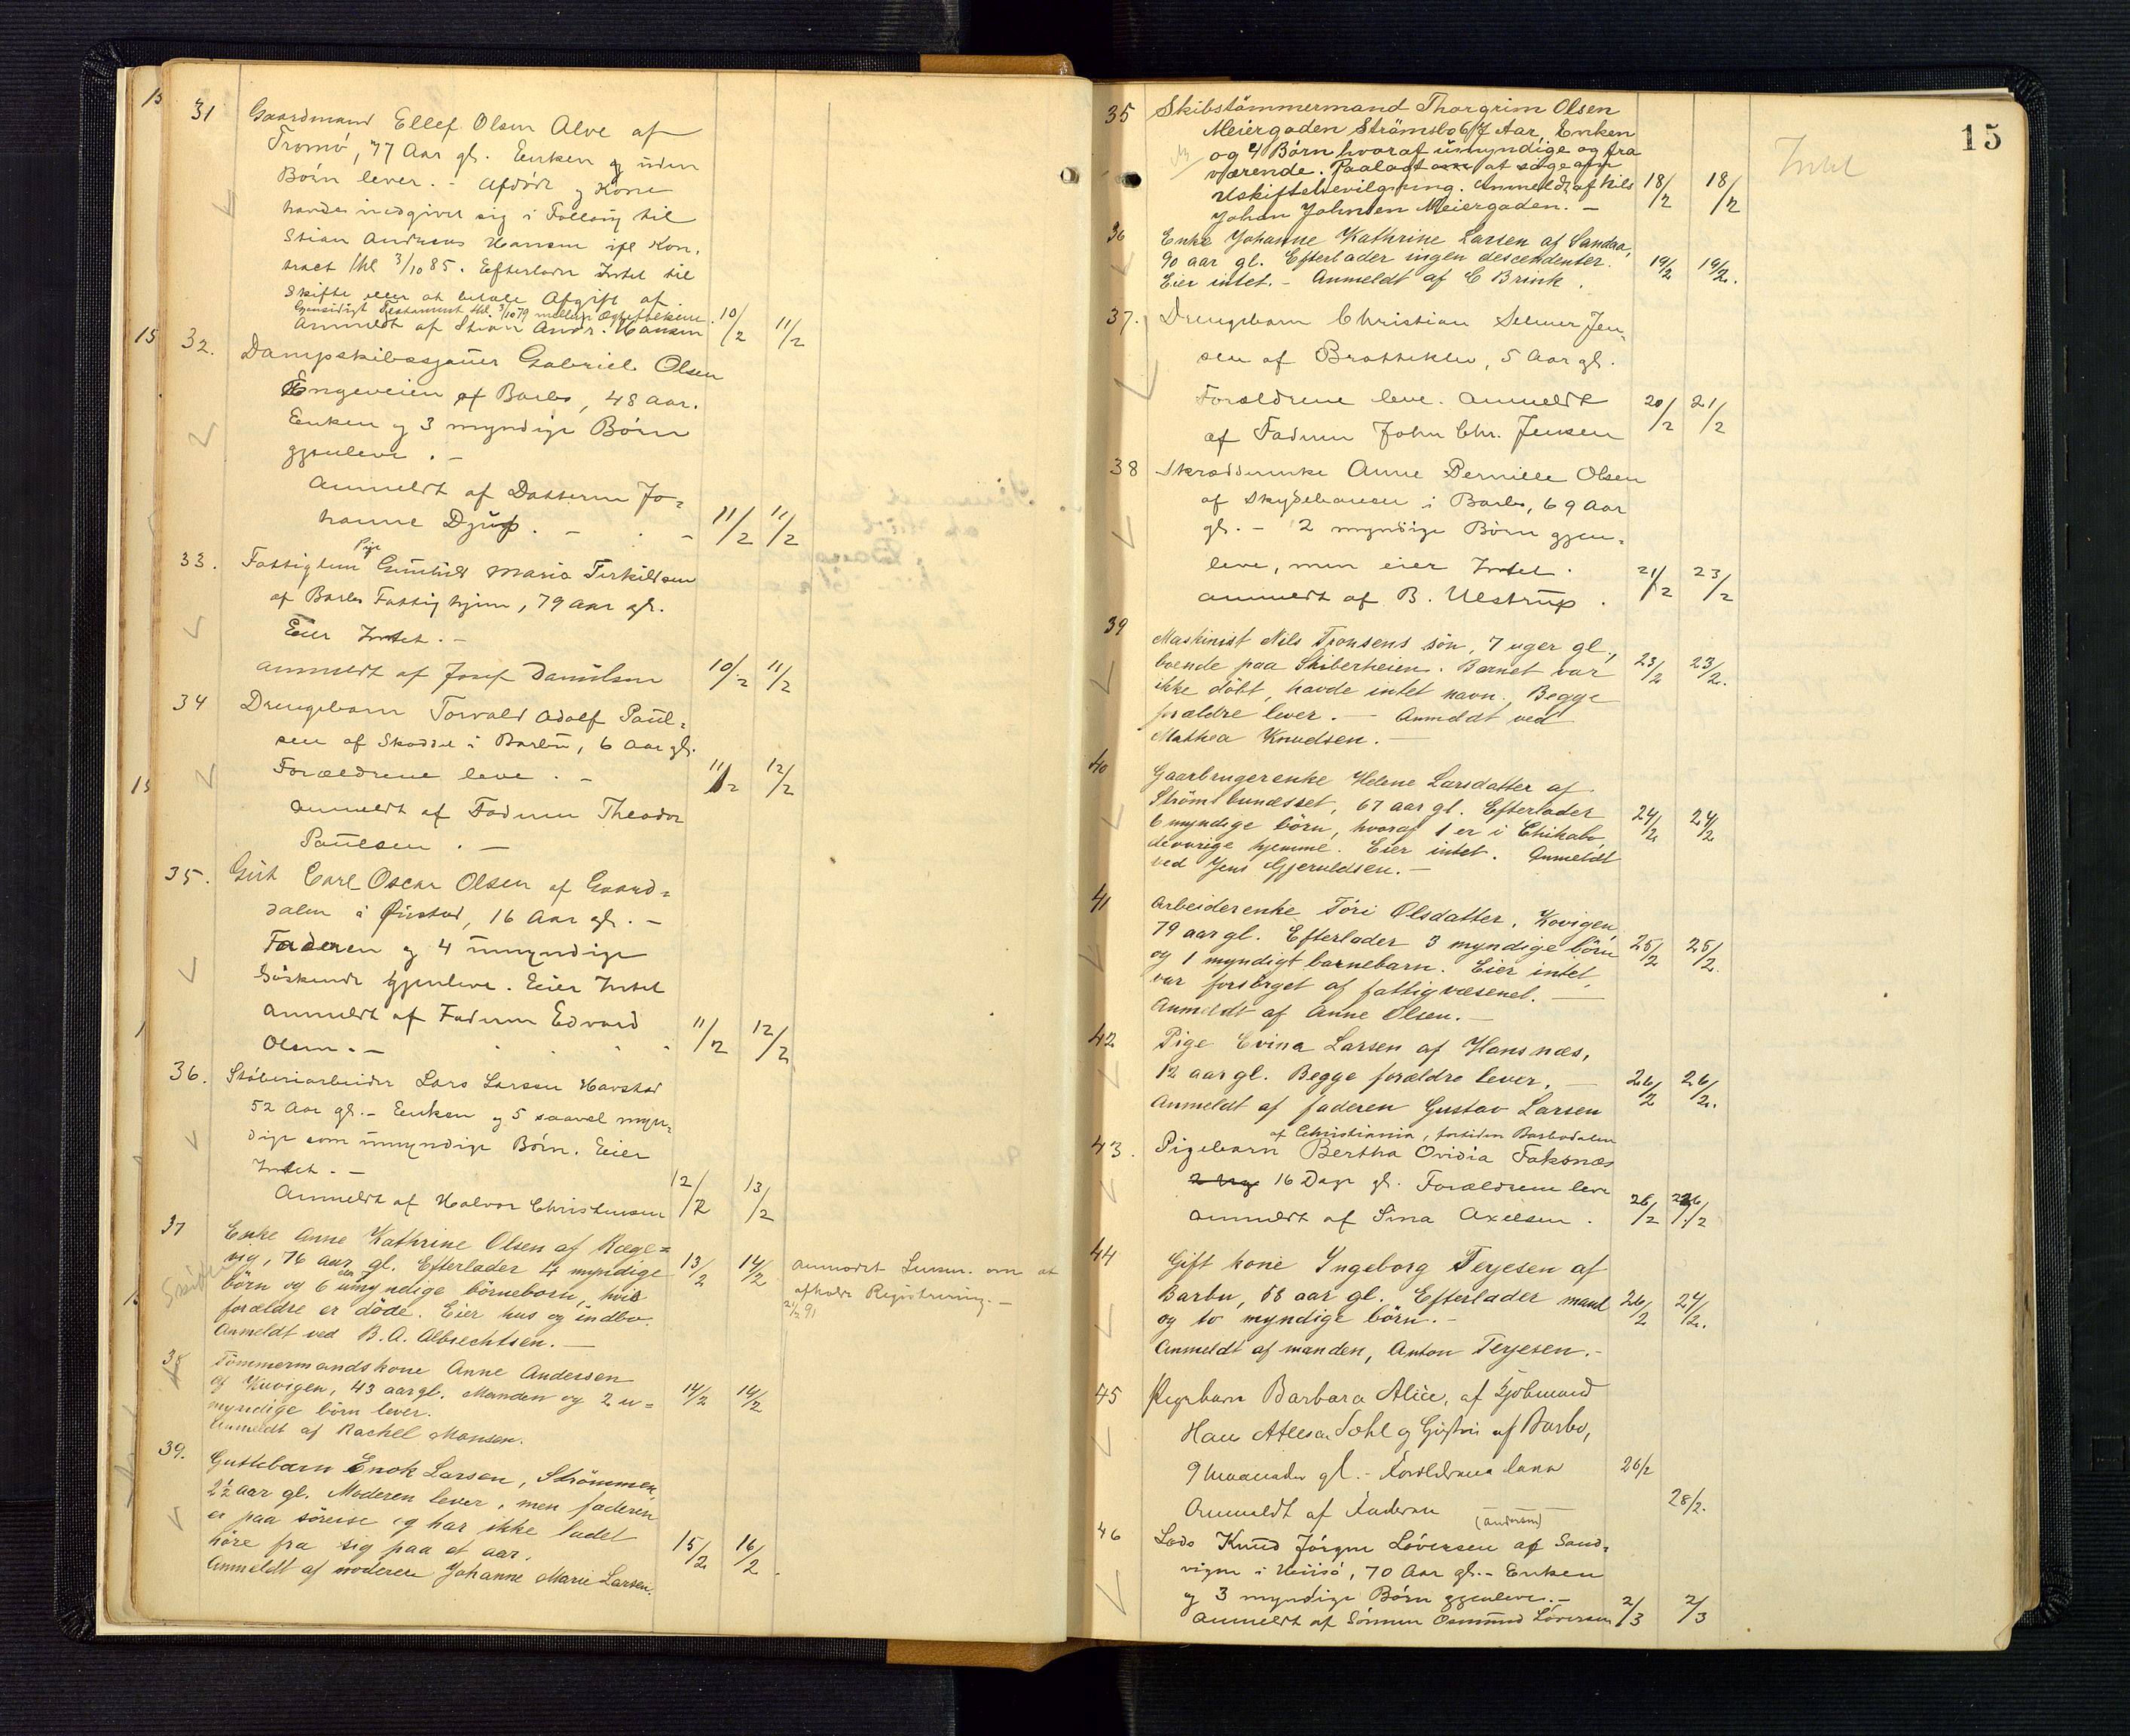 31 Gaardmand Ellef Olsen Alve af
Tromö, 77 Aar gl. Enken og uden
Börn lever. - Afdöde og Kone
havde indgivet sig i Follaug til
Stian Andreas Hansen ifl Kon-
tract thl 3/10 85. Efterlader Intet til
Skifte eller at betale Afgift af
Gjensidigt Testament thl. 3/10 79 mellem Ægtefolkene.
Anmeldt af Stian Andr. Hansen 10/2 11/2
32. Dampskibssjauer Gabriel Olsen
Engeveien af Barbo, 48 Aar.
Enken og 3 myndige Börn
gjenleve. -
Anmeldt af Datteren Jo-
hanne Djup. - 11/2 11/2
33. Fattiglem Pige Gunhild Maria Terkildsen
af Barbo Fattighjem, 79 Aar gl.
Eier Intet. -
Anmeldt af Josef Danielsen 10/2 11/2
34 Drengebarn Torvald Adolf Paul-
sen af Skoddel i Barbu, 6 Aar gl.
Forældrene leve. - 11/2 12/2
Anmeldt af Faderen Theodor
Paulsen. -
35. Gut Carl Oscar Olsen af Gaard-
dalen i Öiestad, 16 Aar gl. -
Faderen og 4 umyndige
Söskende gjenleve. Eier Intet
Anmeldt af Faderen Edvard
Olsen. - 11/2 12/2
36. Stöberiarbeider Lars Larsen Havstad
52 Aar gl. - Enken og 5 saavel myn-
dige som umyndige Börn. Eier
Intet. -
Anmeldt af Halvor Christensen 12/2 13/2
37 Enke Anne Kathrine Olsen af Ræge-
vig, 76 aar gl. Efterlader 4 myndige 13/2 14/2 anmodet Lensm. om at
börn og 6 umyndige börneborn, hvis afholde Registrering. -
forældre er döde. Eier hus og indbo. 21/2 91
Anmeldt ved B. A. Albrechtsen. -
38 Tömmermandskone Anne Andersen
af Kuvigen, 43 aar gl. Manden og 2 u- 14/2 14/2
myndige börn lever.
Anmeldt af Rachel Monsen.
39. Guttebarn Enok Larsen, Strömmen,
2½ aar gl. Moderen lever, men faderen
er paa söreise og har ikke ladet
höre fra sig paa et aar. 15/2 16/2
Anmeldt af moderen Johanne Marie Larsen.
15
35 Skibstömmermand Thorgrim Olsen
Meiergaden Strömsbo 67 Aar, Enken
og 4 Börn hvoraf umyndige og fra
værende. Paalagt at söge om
Uskiftebevilgning. Anmeldt af Nils 18/2 18/2
Johan Johnsen Meiergaden. -
Intet
36 Enke Johanne Kathrine Larsen af Sandaa,
90 aar gl. Efterlader ingen descendenter. 19/2 19/2.
Eier intet. - Anmeldt af C Brink.
37. Drengebarn Christian Selmer Jen-
sen af Bratteklev, 5 Aar gl.
Forældrene leve. Anmeldt 20/2 21/2
af Faderen John Chr. Jensen
38 Skrædderenke Anne Pernille Olsen
af Skydebanen i Barbo, 69 Aar
gl. - 2 myndige Börn gjen-
leve, men eier Intet. 21/2 23/2
Anmeldt af B. Ulstrup.
39 Maskinist Nils Tronsens sön, 7 uger gl.,
boende paa Skiberheien. Barnet var 23/2 23/2.
ikke döbt, havde intet navn. Begge
forældre lever. - Anmeldt ved
Mathea Knudsen. -
40 Gaarbrugerenke Helene Larsdatter af
Strömsbunesset, 67 aar gl. Efterlader 24/2 24/2
6 myndige börn, hvoraf 1 er i Chikabo,
deövrige hjemme. Eier intet. Anmeldt
ved Jens Gjeruldsen. -
41 Arbeiderenke Töri Olsdatter, Kovigen,
79 aar gl. Efterlader 3 myndige börn 25/2 25/2.
og 1 myndigt barnebarn. Eier intet,
var forsörget af fattigvæsenet. -
Anmeldt af Anne Olsen. -
42 Pige Evina Larsen af Hansnæs,
12 aar gl. Begge forældre lever. - 26/2 26/2.
Anmeldt af faderen Gustav Larsen
af Christiania, fortiden Barbodalen
43. Pigebarn Bertha Ovidia Faksnæs
16 Dage gl. Forældrene leve
Anmeldt af Sina Axelsen. 26/2 26/2
44 Gift kone Ingeborg Terjesen af
Barbu, 58 aar gl. Efterlader mand 26/2 27/2.
og to myndige börn. -
Anmeldt af manden, Anton Terjesen. -
45 Pigebarn Barbara Alice, af Sjömand
Hans Atlesen Dohl og Hustru af Barbo,
9 Maaneder gl. - Forældrene leve 26/2
Anmeldt af Faderen 28/2.
(Andersen)
46 Lods Knud Jörgen Löversen af Sand-
vigen i Hisö, 70 Aar gl. - Enken
og 3 myndige Börn gjenleve. -
Anmeldt af Sönnen Osmund Löversen 2/3 2/3